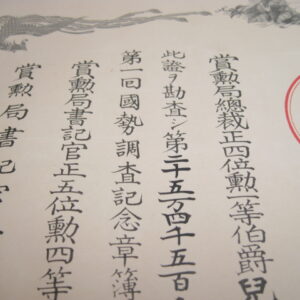 賞勲局總裁正四位勲一等伯爵兒
此證ヲ勘査シ第二十五万四千五百
第一回國勢調査記念章簿
賞勲局書記官正五位勲四等
賞勲局書記官